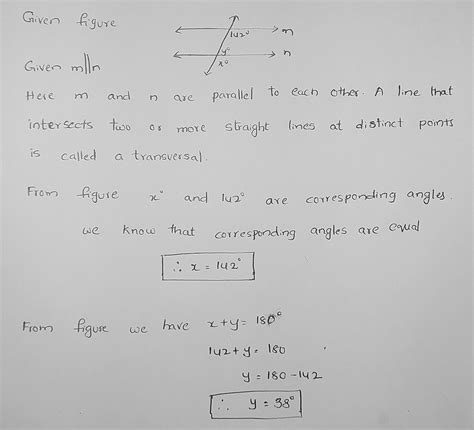 Given figure
142° m
y° n
x°
Given m||n
Here m and n are parallel to each other. A line that
intersects two or more straight lines at distinct points
is called a transversal.
From figure x° and 142° are corresponding angles.
we know that corresponding angles are equal
∴ x = 142°
From figure we have x+y= 180°
142+y= 180
y = 180-142
∴ y = 38°